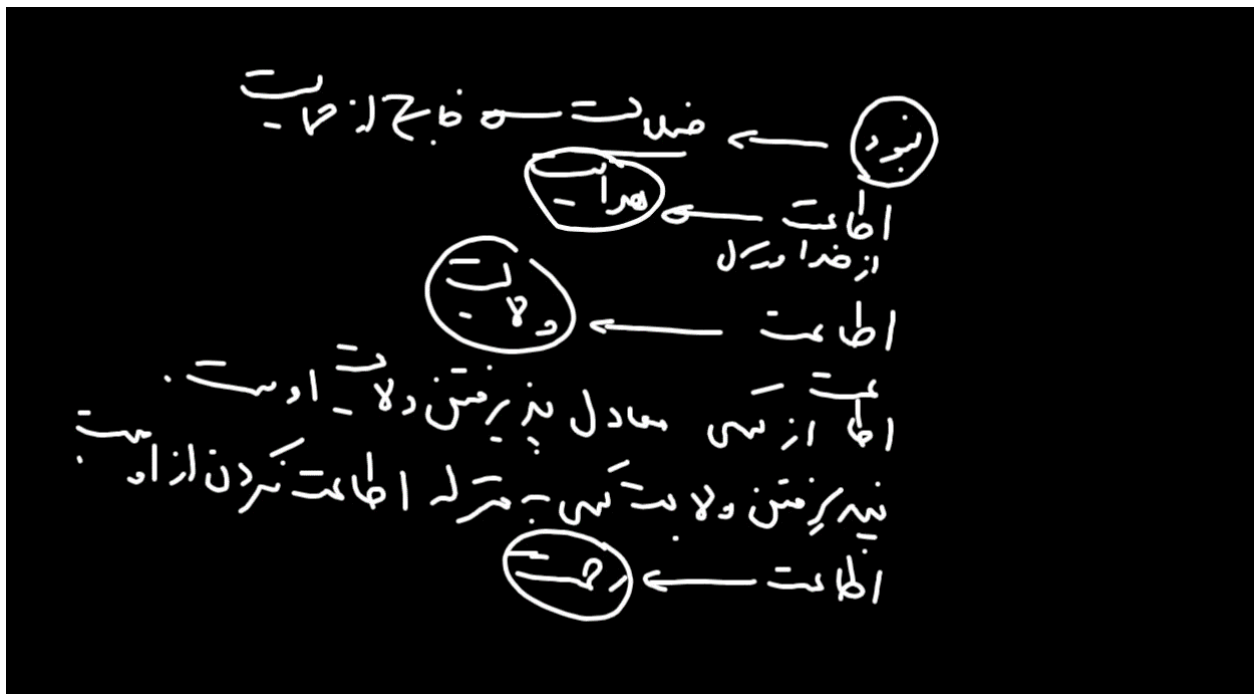 نبود ← ضلالت ← خارج از
اطاعت ← هدایت
از خدا و رسول
اطاعت ← ولایت
اطاعت از کسی معادل پذیرفتن ولایت اوست.
نپذیرفتن ولایت کسی به منزله اطاعت نکردن از اوست.
اطاعت ← رحمت